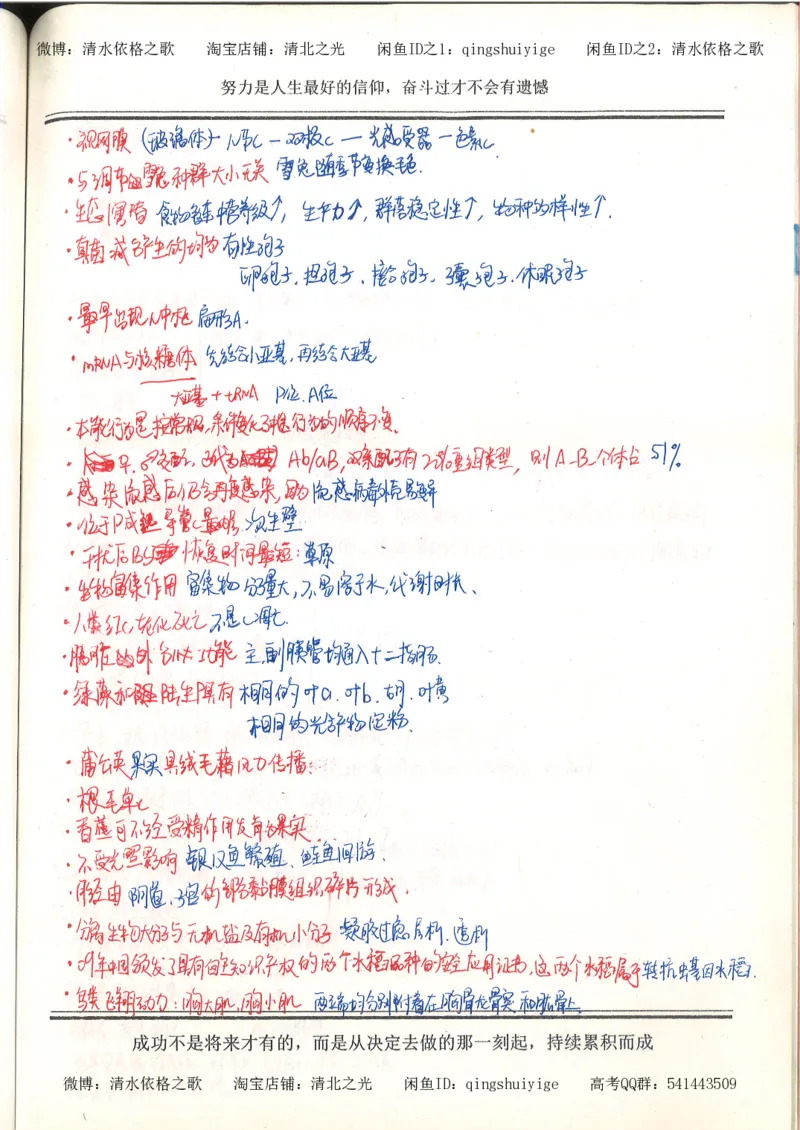 微博：清水依格之歌 淘宝店铺：清北之光 闲鱼ID之1：qingshuiyige 闲鱼ID之2：清水依格之歌
努力是人生最好的信仰，奋斗过才不会有遗憾
·视网膜（玻璃体）— 节C — 双极C — 光感受器 — 色素C
·与调节 种群大小无关 雪兔随季节变换毛色.
·生态 食物链中营养级↑, 生产力↑, 群落稳定性↑, 物种多样性↑.
·真菌减 产生的均为有性孢子
卵孢子.担孢子.接合孢子.子囊孢子.休眠孢子
·最早出现N中枢 扁形A.
·mRNA与核糖体 先结合小亚基,再结合大亚基
大亚基++tRNA P位.A位
·本能行为是 行为的顺序不变.
· Ab/aB, 重组类型, 则A_B_个体占51%
·感染流感后仍会再度感染,因为流感病毒 易变异
·位于 次生壁
·干扰后 恢复时间最短：草原
·生物富集作用 富集物 分子量大,不易溶于水,代谢时长、
·人类红C 不是C凋亡.
· 外分泌功能 主、副胰管均通入十二指肠.
·绿藻和 陆生 具有相同的叶a.叶b.胡.叶黄
相同的光合产物淀粉.
·蒲公英果实具绒毛藉风力传播.
·根毛单C
·香蕉可不经受精作用发育成果实.
·不受光照影响 银汉鱼繁殖、鲑鱼洄游.
· 经由阴道、 的 黏膜组织碎片形成.
·分离生物大分子与无机盐及有机小分子 凝胶过滤层析.透析
·09年中国颁发了具有自主知识产权的两个水稻品种的安全应用证书,这两个水稻属于转抗虫基因水稻.
·鸟类飞翔动力：胸大肌,胸小肌 两端均分别附着在胸骨龙骨突和肱骨上.
成功不是将来才有的，而是从决定去做的那一刻起，持续累积而成
微博：清水依格之歌 淘宝店铺：清北之光 闲鱼ID：qingshuiyige 高考QQ群：541443509